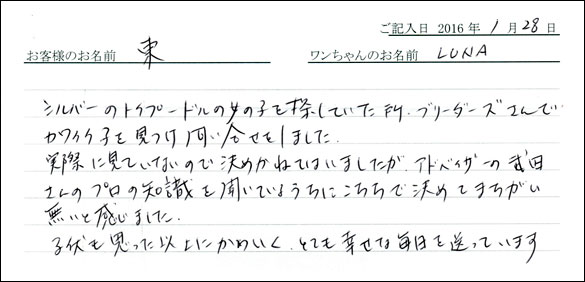 ご記入日 2016年 1月 28日
お客様のお名前 東 ワンちゃんのお名前 LUNA
シルバーのトイプードルの女の子を探していた所、ブリーダーズさんで
カワイイ子を見つけ問い合せをしました。
実際に見ていないので決めかねてはいましたが、アドバイザーの武田
さんのプロの知識を聞いているうちにこちらで決めてまちがい
無いと感じました。
子犬も思った以上にかわいく、とても幸せな毎日を送っています